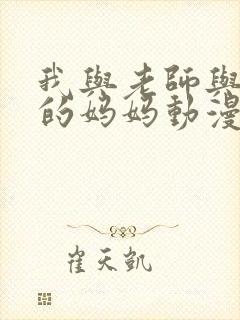 我與老師與
的妈妈動漫
崔天凱